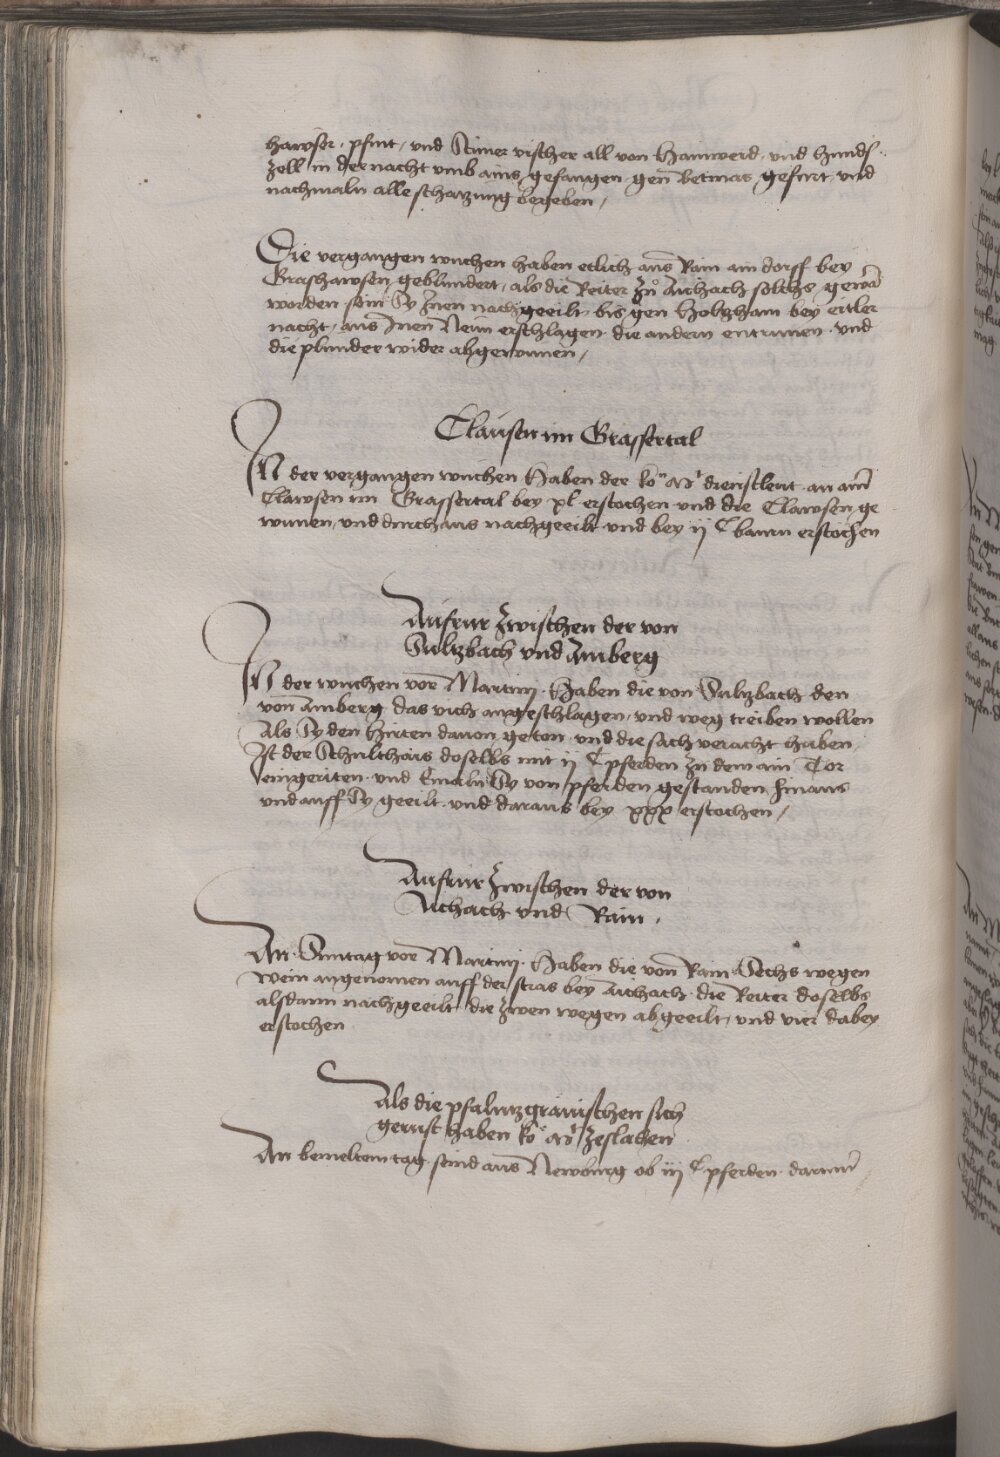 hawser, pfint, und Steiner vischer all von Hainwerd, und hunds
zell in der nacht umb ains gefangen gen Betmas gefurt, und
nachmaln alle schatzung begeben /
Die vergangen wuchen haben etlich aus Rain ain dorff bey
Grashawsen geblundert, als die Reiter zu Aichach solchs gewar
worden sein Sy Inen nachgeeilt bis gen Holtzham bey eitler
nacht, aus Inen Neun erschlagen die andern entrunnen und
die plunder wider abgewunnen /
Clausen im Grassertal
IN der vergangen wuchen Haben der ko mt dienstleut an ainer
Clawsen im Grassertal bey xl erstochen und die Clawsen ge
wunnen, und durchaus nachgeeilt und bey ij C baurn erstochen
Aufrur zwischen der von
Sultzbach und Amberg
IN der wuchen vor Martinj Haben die von Sultzbach den
von Amberg das vich angeschlagen, und weg treiben wollen
Als Sy den hirten davon geton und die sach veracht haben,
Ist der Schulthais doselbs mit ij C pferden zu dem ain Tor
eingeriten und Sy von pferden gestanden hinaus
und auff Sy geeilt und daraus bey xxx erstochen /
Aufrur zwischen der von
Aichach und Rain,
An Suntag vor Martinj Haben die von Rain Sechs wegen
Wein angenomen auff der stras bey Aichach die Reiter doselbs
alsdann nachgeeilt die zwen wegen abgeeilt, und vier dabey
erstochen
Als die pfaltzgravischen sich
gerust haben ko mt zeslahen
An bemeltem tag seind aus Newburg ob iij C pferden darunder